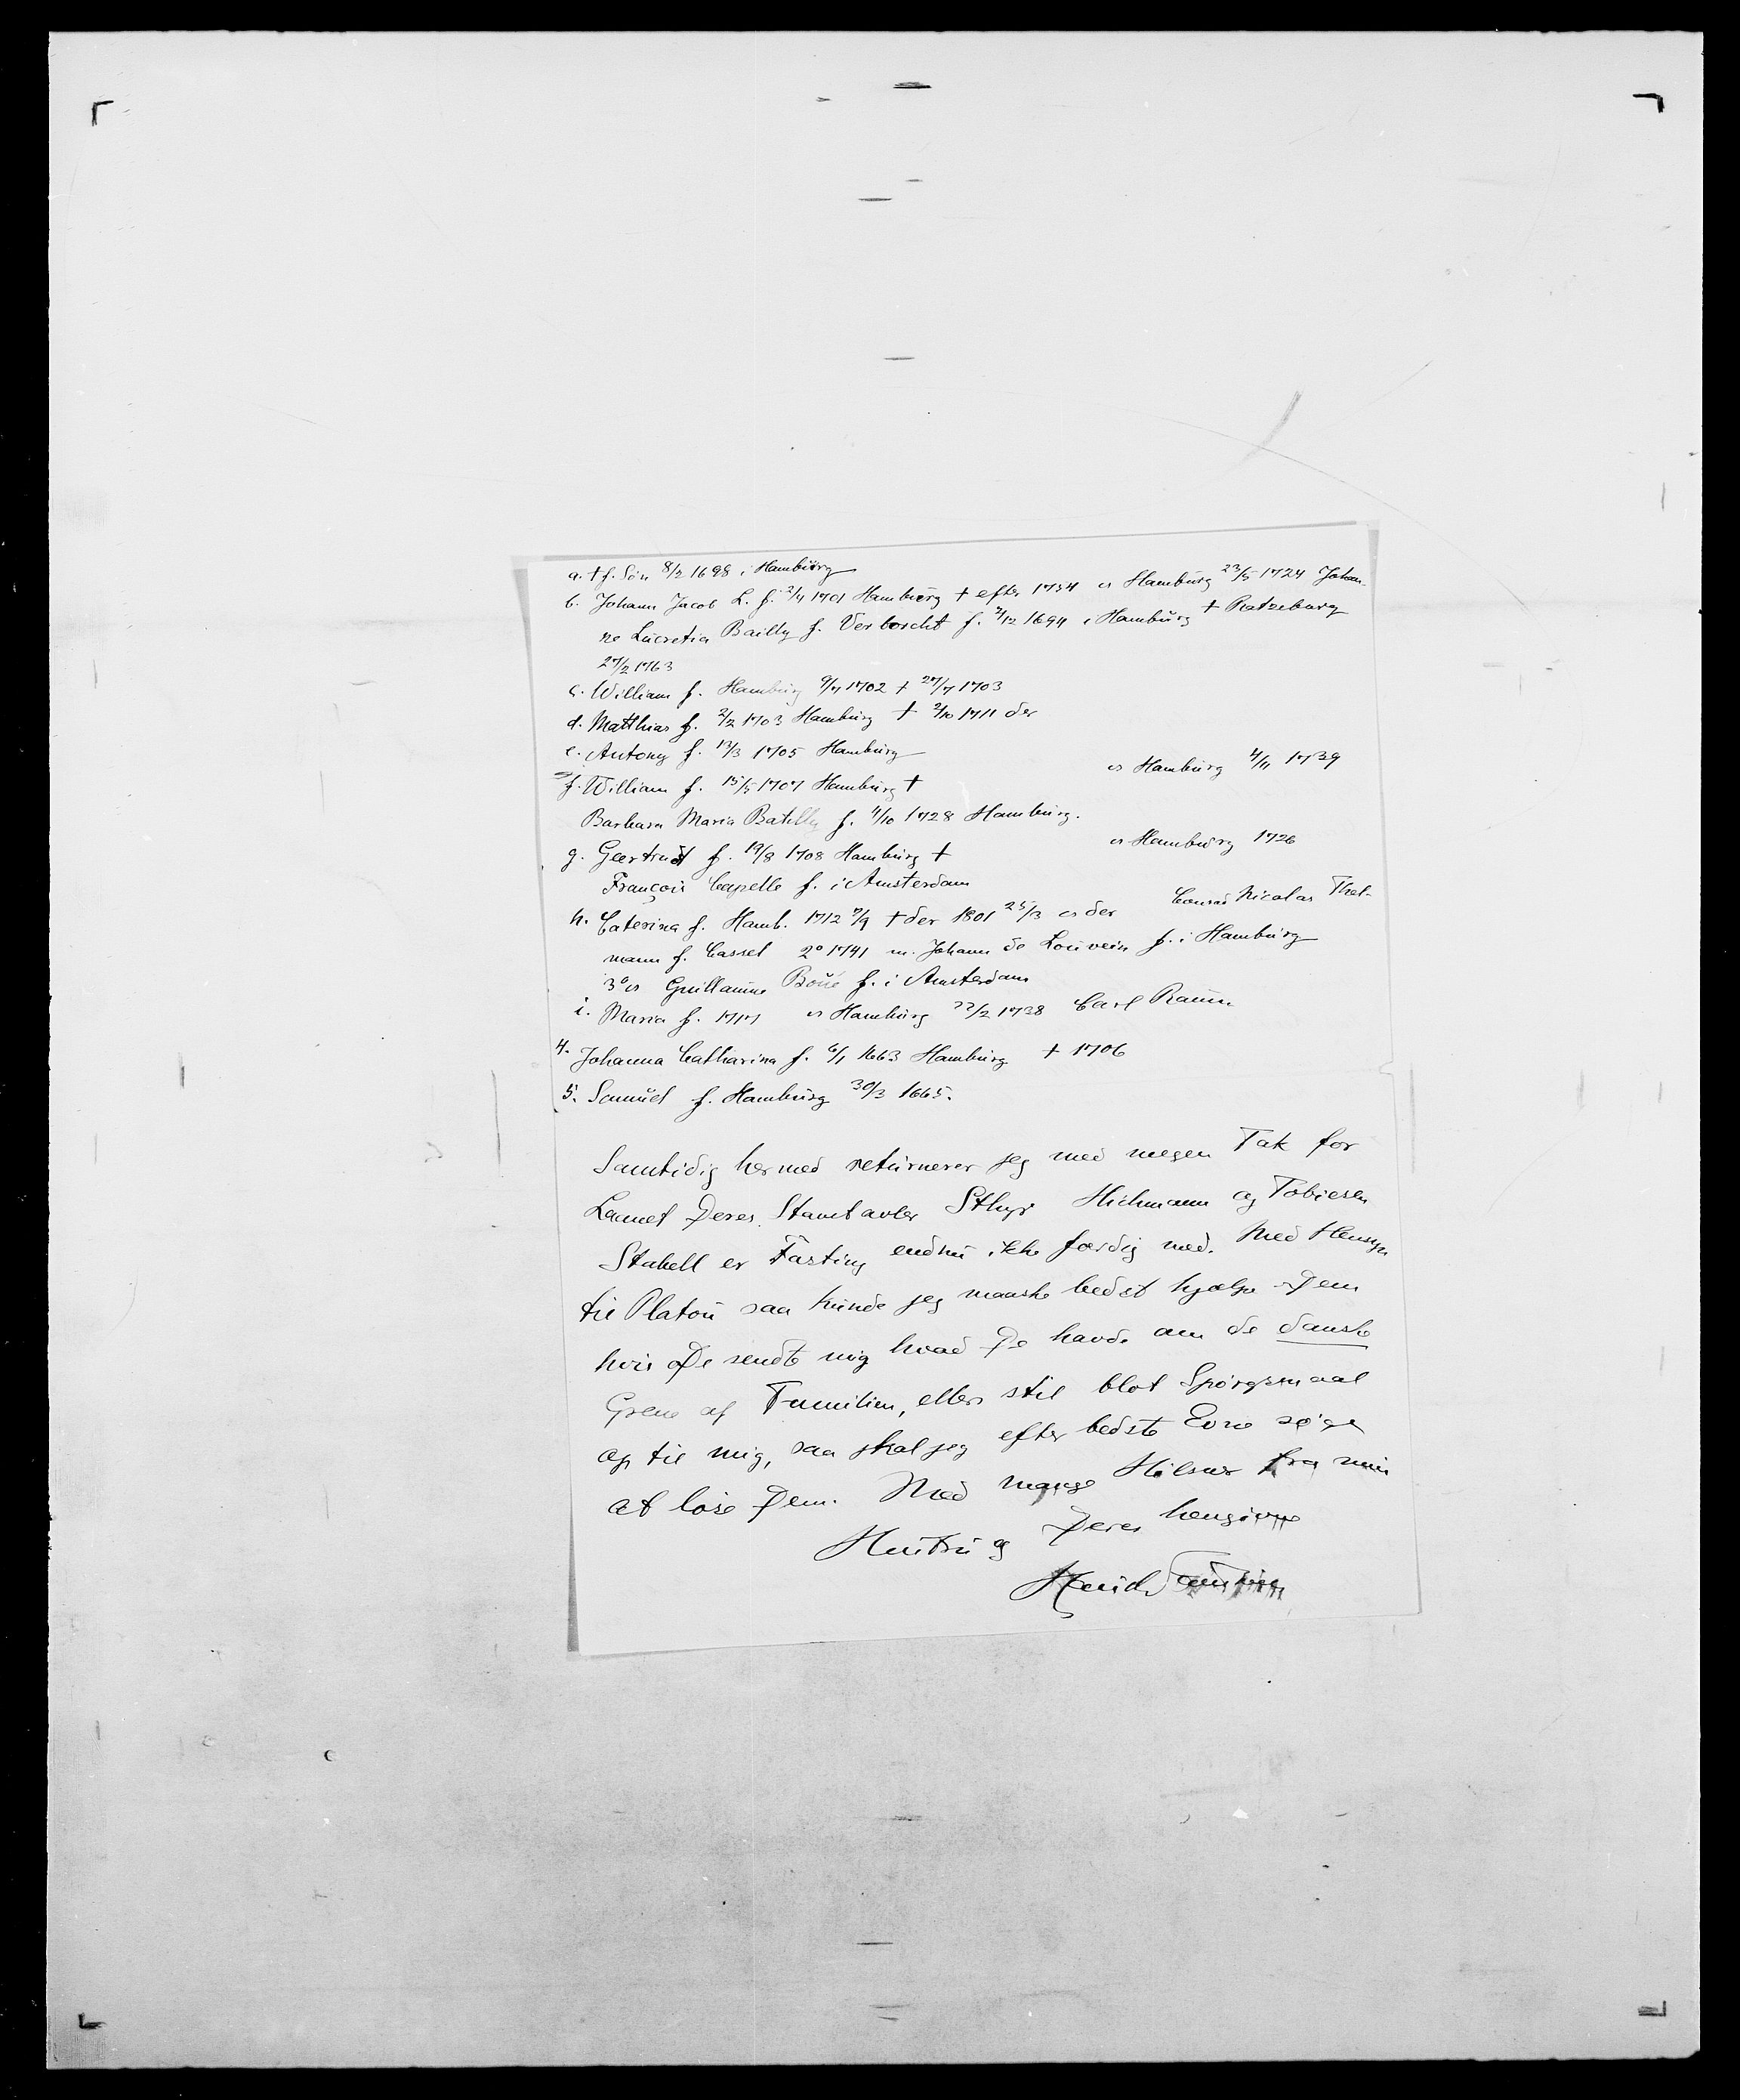 a. †f. Sön 8/2 1698 i Hamburg
b. Johann Jacob L. f. 2/4 1701 Hamburg † efter 1754 ∞ Hamburg 23/5 1724 Johan-
ne Lucretia Bailly f. Verborcht f. 7/12 1694 i Hamburg † Ratzeburg
27/2 1763
c. William f. Hamburg 9/7 1702 † 27/7 1703
d. Matthias f. 2/2 1703 Hamburg † 2/10 1711 der
e. Antony f. 13/3 1705 Hamburg
f. William f. 15/5 1707 Hamburg † ∞ Hamburg 4/11 1739
Barbara Maria Batilly f. 4/10 1728 Hamburg.
g. Geertrudt f. 19/8 1708 Hamburg † ∞ Hamburg 1726
François Capelle f. i Amsterdam
h. Caterina f. Hamb. 1712 7/9 † der 1801 25/3 ∞ der Conrad Nicolas Thal-
mann f. Cassel 2° 1741 m. Johann de Louvein f. i Hamburg
3° ∞ Guillaume Boué f. i Amsterdam
i. Maria f. 1717 ∞ Hamburg 22/2 1738 Carl
4. Johanna Catharina f. 6/1 1663 Hamburg † 1706
5. Samuel f. Hamburg 30/3 1665.
Samtidig hermed returnerer jeg med megen Tak for
Laanet Deres Stamtavler Sthyr Hichmann og Tobiesen
Stabell er Fasting endnu ikke færdig med. Med Hensyn
til Platou saa kunde jeg maaske bedst hjælpe Dem
hvis De sendte mig hvad De havde om de danske
Grene af Familien, ellers stil blot Spörgsmaal
op til mig, saa skal jeg efter bedste Evne söge
at löse Dem. Med mange Hilsner fra min
Hustru og Deres hengivne